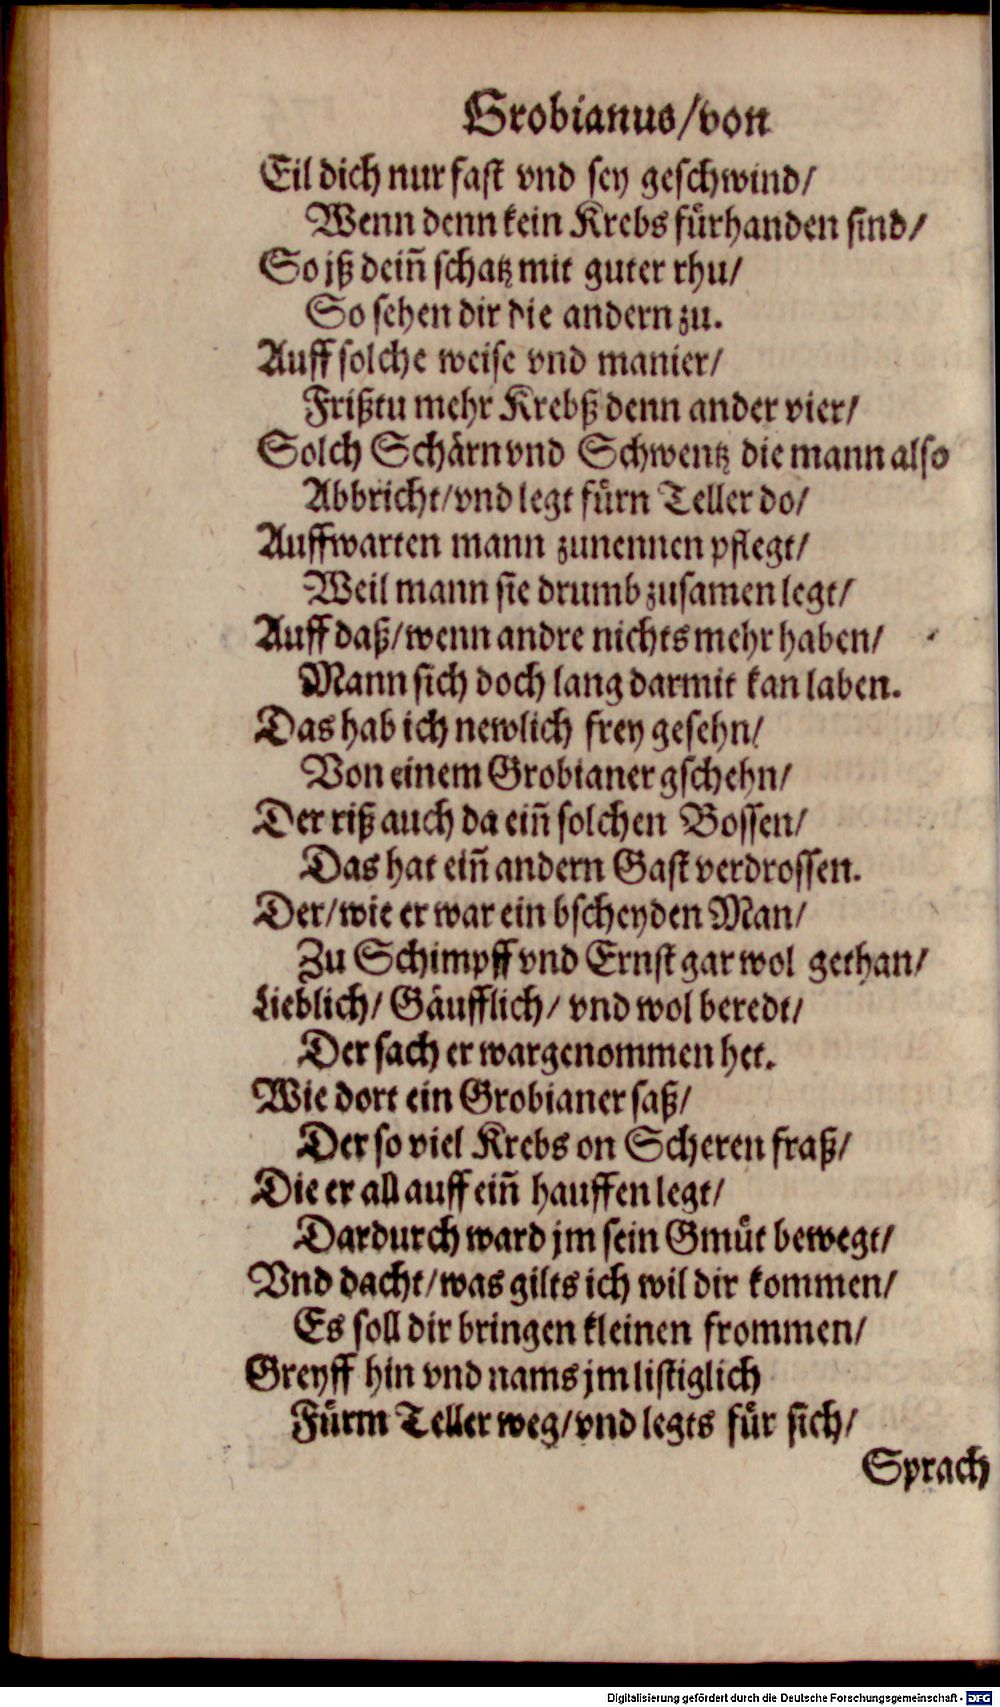 Grobianus/von
Eil dich nur fast vnd sey geschwind/
Wenn denn kein Krebs fürhanden sind/
So jß deiñ schatz mit guter rhu/
So sehen dir die andern zu.
Auff solche weise vnd manier/
Frißtu mehr Krebß denn ander vier/
Solch Schärn vnd Schwentz die mann also
Abbricht/vnd legt fürn Teller do/
Auffwarten mann zunennen pflegt/
Weil mann sie drumb zusamen legt/
Auff daß/wenn andre nichts mehr haben/
Mann sich doch lang darmit kan laben.
Das hab ich newlich frey gesehn/
Von einem Grobianer gschehn/
Der riß auch da eiñ solchen Bossen/
Das hat eiñ andern Gast verdrossen.
Der/wie er war ein bscheyden Man/
Zu Schimpff vnd Ernst gar wol gethan/
Lieblich/ Gäufflich/ vnd wol beredt/
Der sach er wargenommen het.
Wie dort ein Grobianer saß/
Der so viel Krebs on Scheren fraß/
Die er all auff eiñ hauffen legt/
Dardurch ward jm sein Gmüt bewegt/
Vnd dacht/was gilts ich wil dir kommen/
Es soll dir bringen kleinen frommen/
Greyff hin vnd nams jm listiglich
Fürm Teller weg/vnd legts für sich/
Sprach
Digitalisierung gefördert durch die Deutsche Forschungsgemeinschaft - DFG